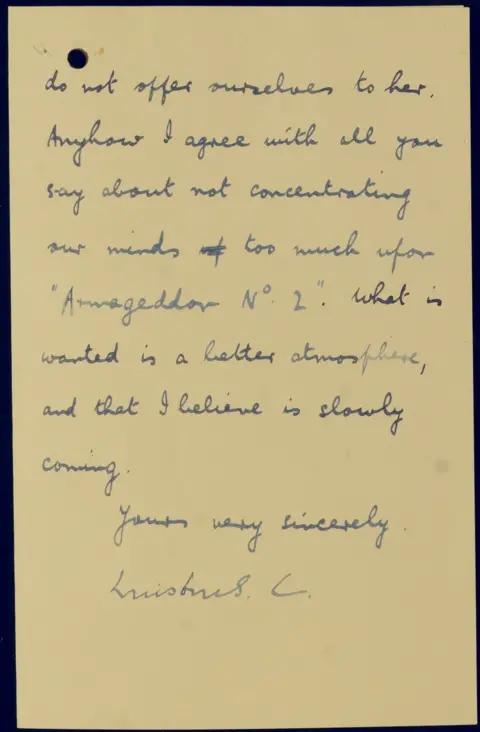 do not offer ourselves to her.
Anyhow I agree with all you
say about not concentrating
our minds too much upon
"Armageddon No. 2". What is
wanted is a better atmosphere,
and that I believe is slowly
coming.
Yours very sincerely.
Winston S. C.